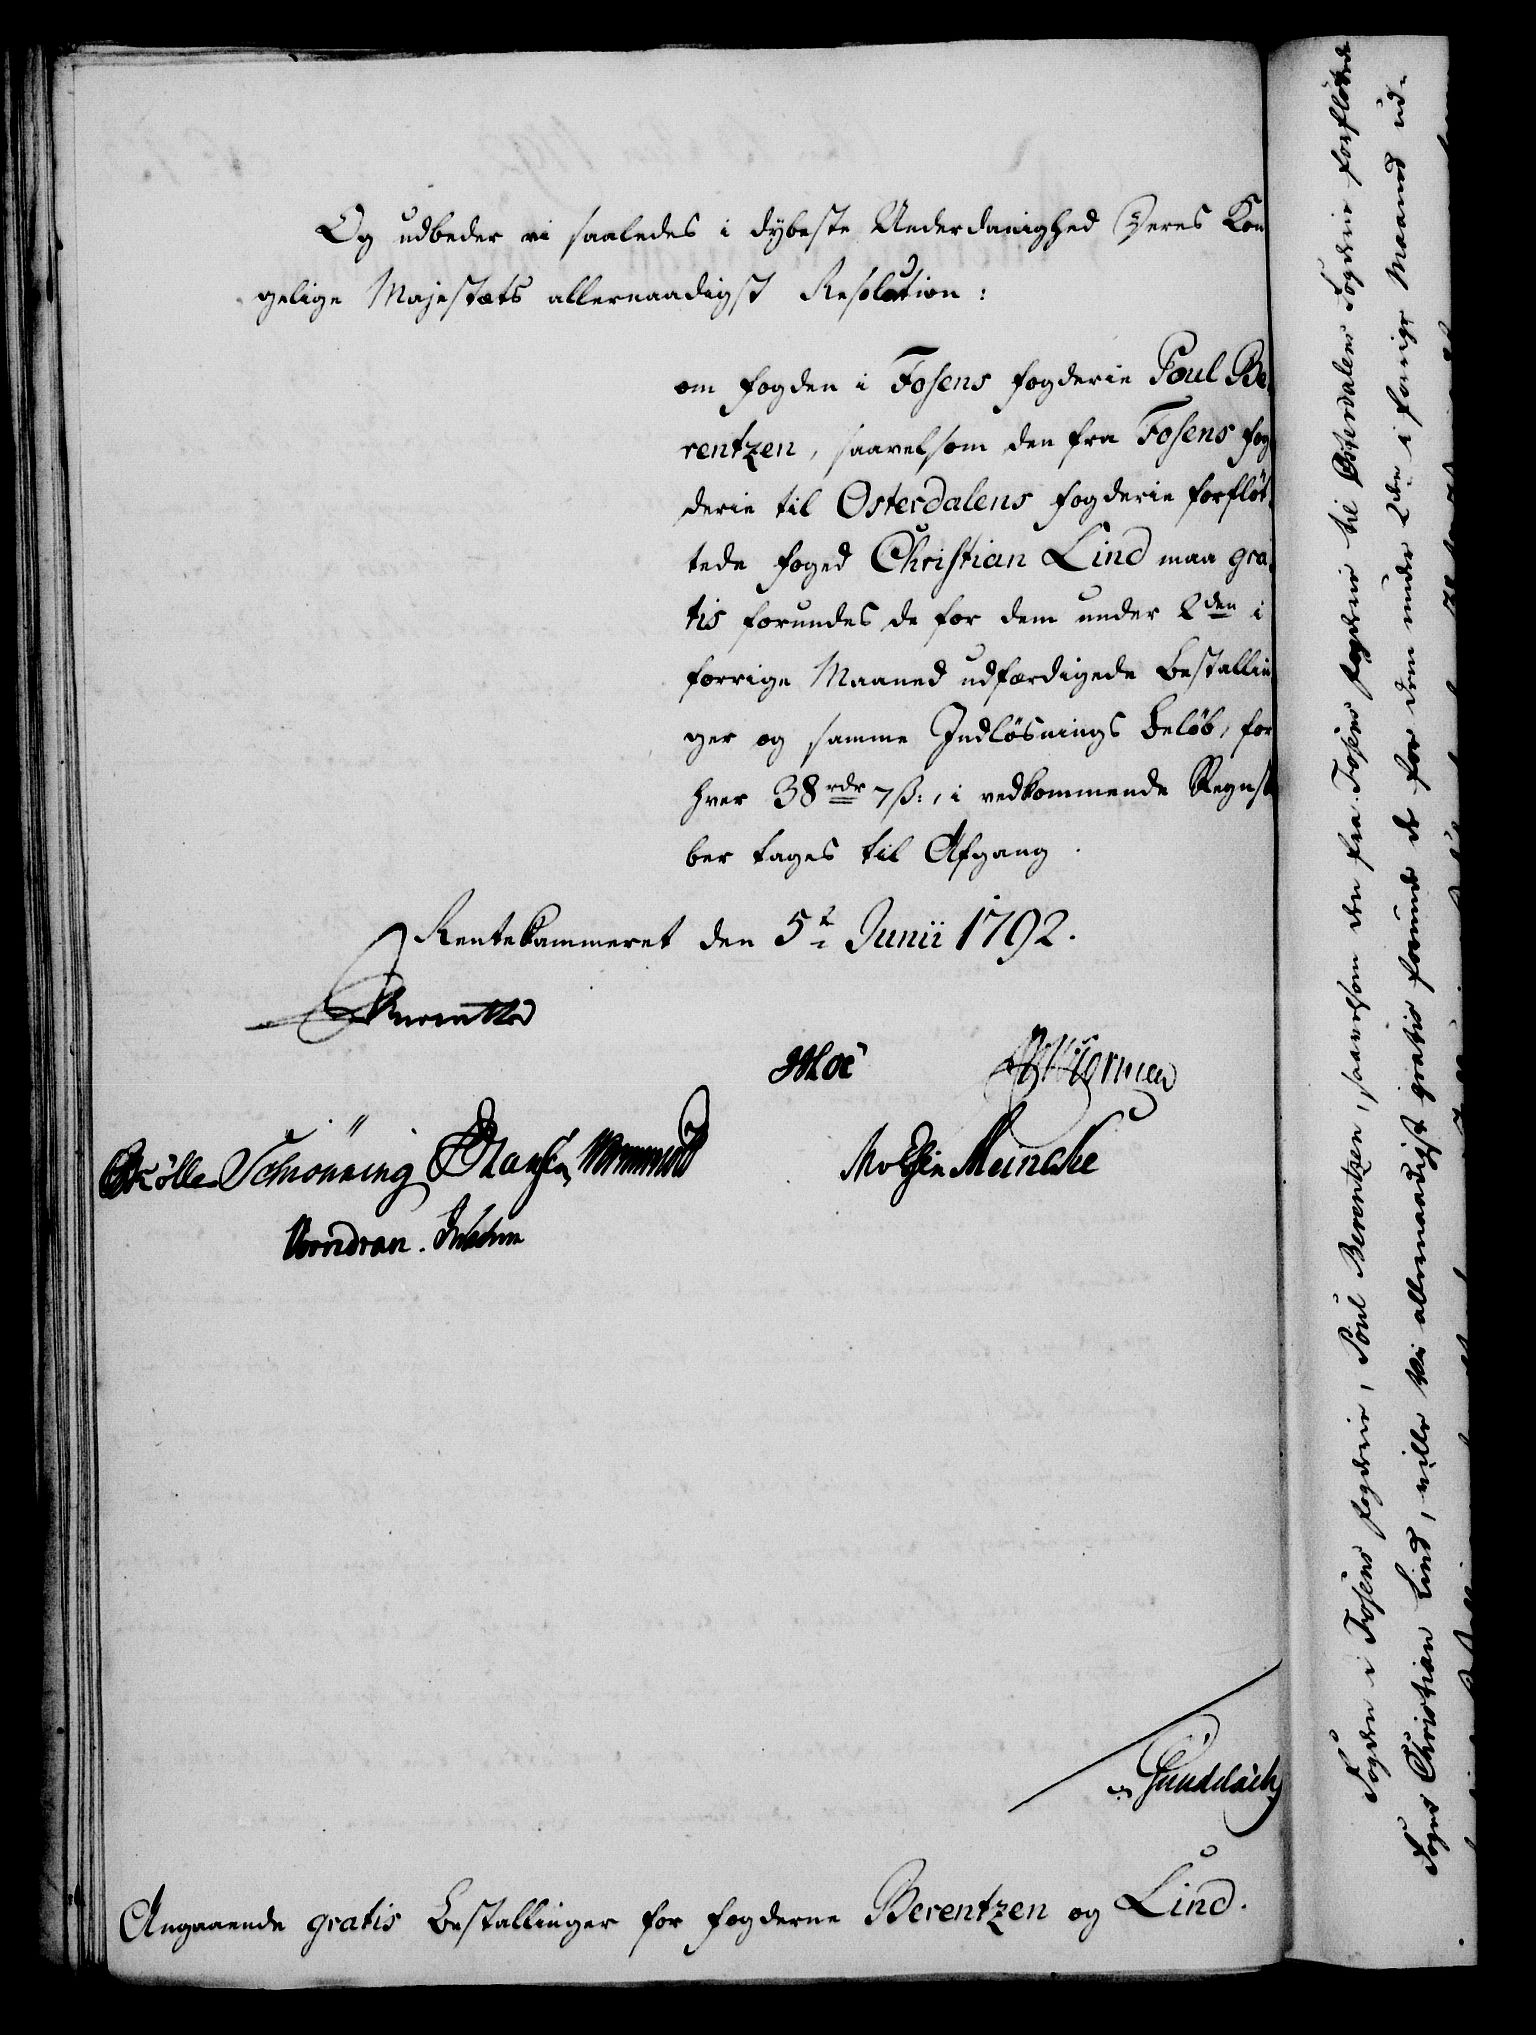 Og udbeder vi saaledes i dybeste Underdanighed Deres Kon
gelige Majestæts allernaadigst Resolution:
om Fogden i Fosens Fogderie Poul Be,
rentzen, saavelsom den fra Fosens Fog
derie til Østerdalens Fogderie forfløt,
tede Foged Christian Lind maa gra,
tis forundes de for dem under 2den i
forrige Maaned udfærdigede Bestallin
ger og samme Indløsnings Beløb, for
hver 38 rdr 7 ß:, i vedkommende Regnska
ber tages til Afgang.
Rentekammeret den 5t Junii 1792.
Moe
Wormen
Schiønning Hansen
Meincke
Vorndran.
Angaaende gratis Bestallinger for Fogderne Berentzen og Lind.
Fogden i Fosens Fogderie, Poul Berentzen, saavelsom den fra Fosens Fogderie til Østerdalens Fogderie forfløttede
Foged Christian Lind, ville Vi allernaadigst gratis forunde de for dem under 2den i forrige Maaned ud-